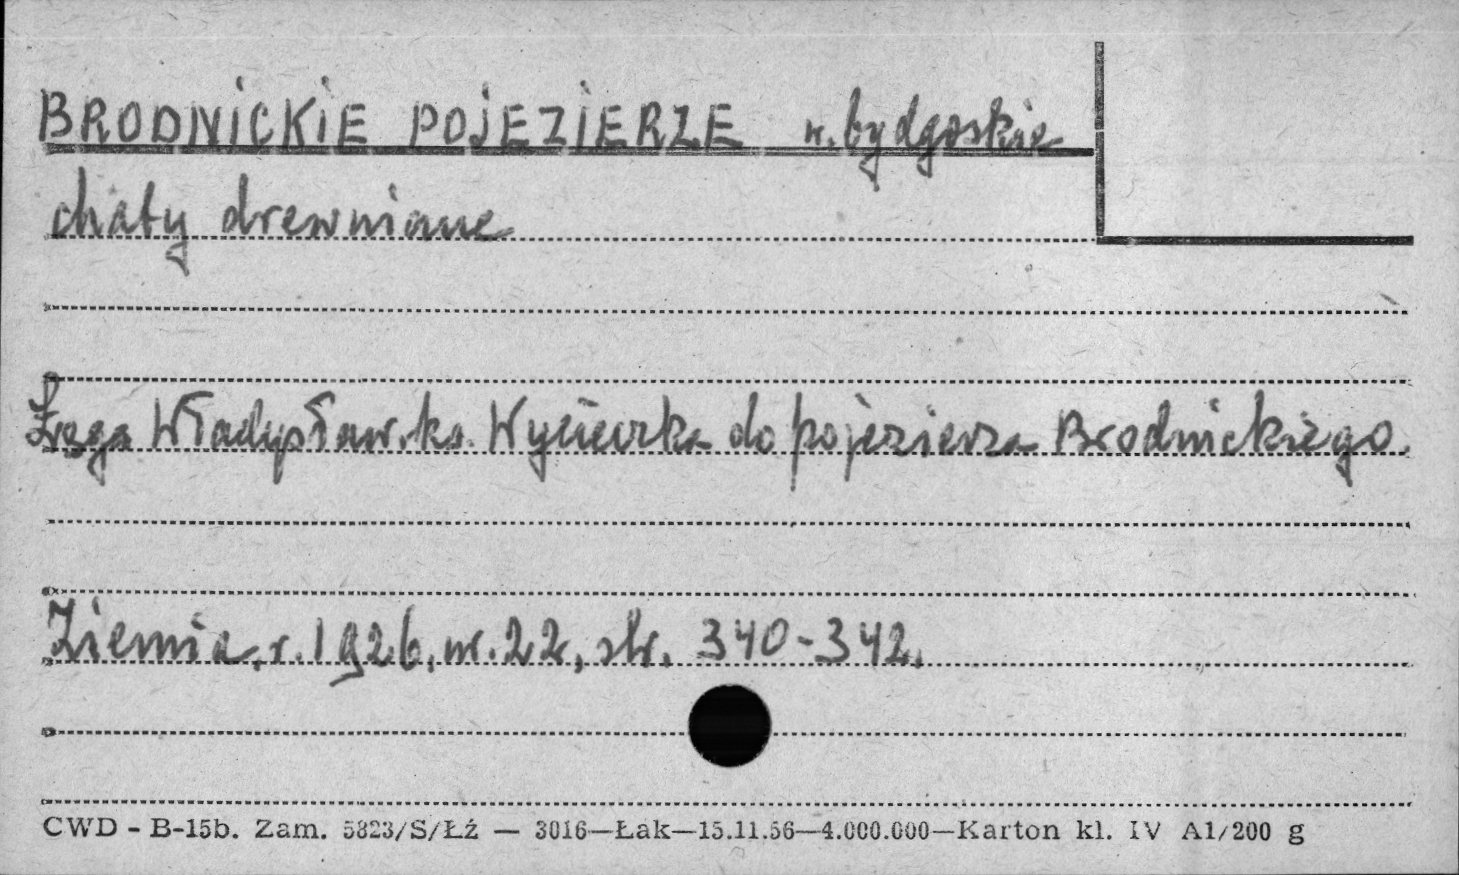 BRODNICKIE POJEZIERZE w. bydgoskie
chaty drewniane
Łęga Władysław. ks. Wycieczka do pojezierza Brodnickiego.
Ziemia, r. 1926, nr. 22, str. 340-342.
CWD - B-15b. Zam. 5823/S/Łź — 3016—Łak—15.11.56—4.000.000—Karton kl. IV A1/200 g